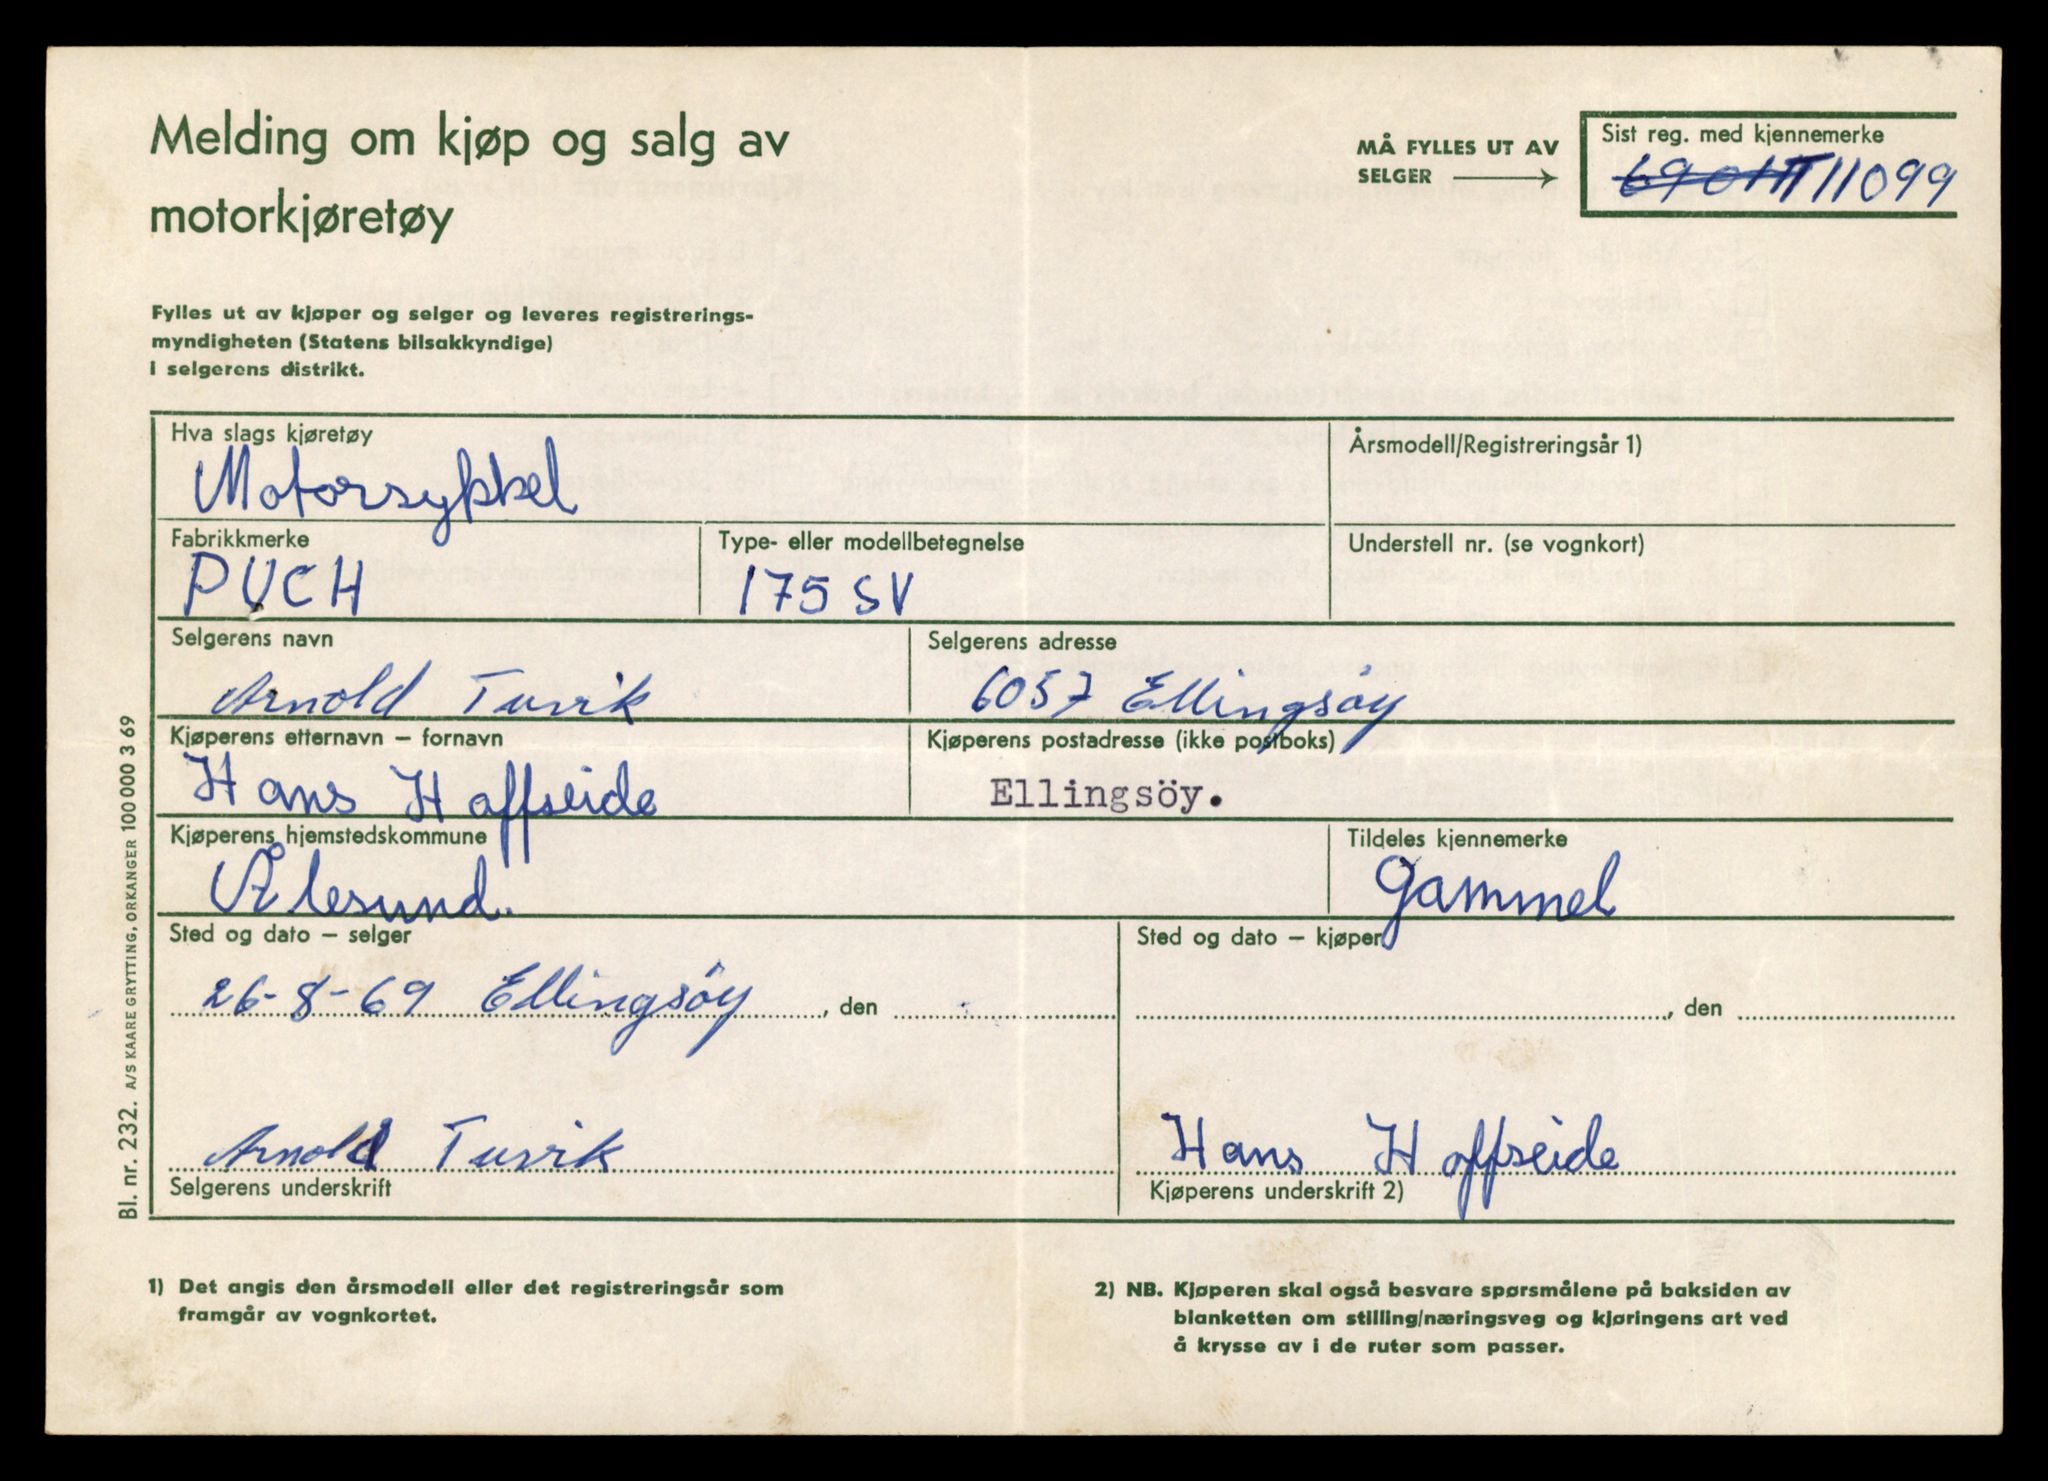 Melding om kjøp og salg av
motorkjøretøy
MÅ FYLLES UT AV
SELGER
Sist reg. med kjennemerke
T 11099
Fylles ut av kjøper og selger og leveres registrerings-
myndigheten (Statens bilsakkyndige)
i selgerens distrikt.
Hva slags kjøretøy
Motorsykkel
Årsmodell/Registreringsår 1)
Fabrikkmerke
PUCH
Type- eller modellbetegnelse
175 SV
Understell nr. (se vognkort)
Selgerens navn
Arnold Turvik
Selgerens adresse
6057 Ellingsöy
Kjøperens etternavn – fornavn
Hans Hoffseide
Kjøperens postadresse (ikke postboks)
Ellingsöy.
Kjøperens hjemstedskommune
Ålesund.
Tildeles kjennemerke
Gammel
Sted og dato – selger
26-8-69 Ellingsöy, den
Sted og dato – kjøper
, den
Arnold Turvik
Selgerens underskrift
Hans Hoffseide
Kjøperens underskrift 2)
Bl. nr. 232. A/S KAARE GRYTTING, ORKANGER 100 000 3 69
1) Det angis den årsmodell eller det registreringsår som
framgår av vognkortet.
2) NB. Kjøperen skal også besvare spørsmålene på baksiden av
blanketten om stilling/næringsveg og kjøringens art ved
å krysse av i de ruter som passer.